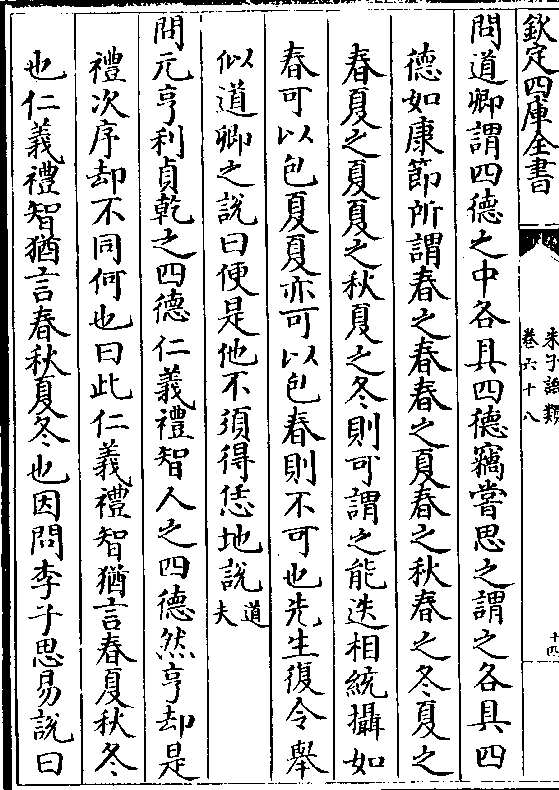 欽定四庫全書
朱子語類
卷六十八
十四
問道卿謂四德之中各具四德竊嘗思之謂之各具四
德如康節所謂春之春春之夏春之秋春之冬夏之
春夏之夏夏之秋夏之冬則可謂之能迭相統攝如
春可以包夏夏亦可以包春則不可也先生復令舉
似道卿之說曰便是他不須得恁地說道夫
問元亨利貞乾之四德仁義禮智人之四德然亨却是
禮次序却不同何也曰此仁義禮智猶言春夏秋冬
也仁義禮智猶言春秋夏冬也因問李子思易說曰